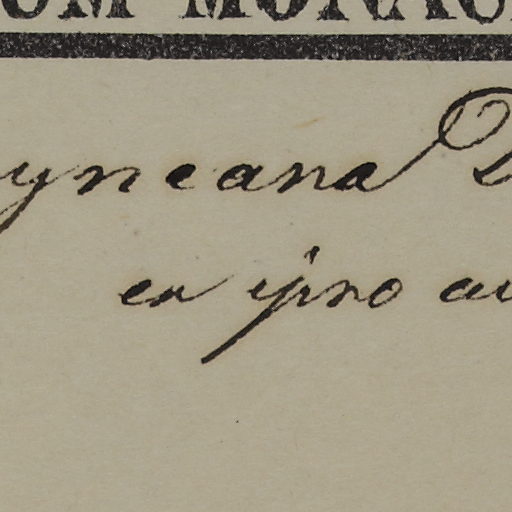 UM MONAC
yneana D
ex ipso au